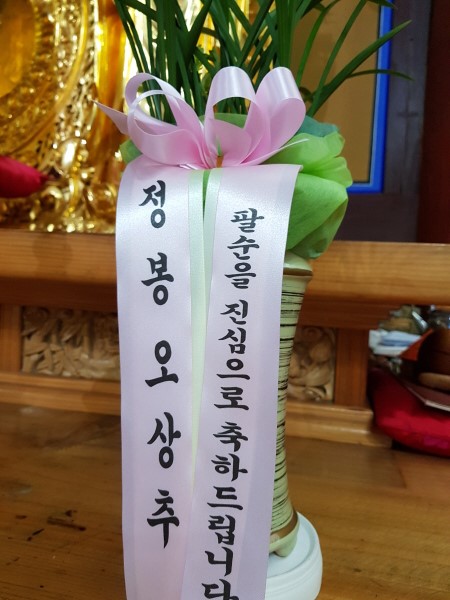 팔순을 진심으로 축하드립니다
정봉오상추